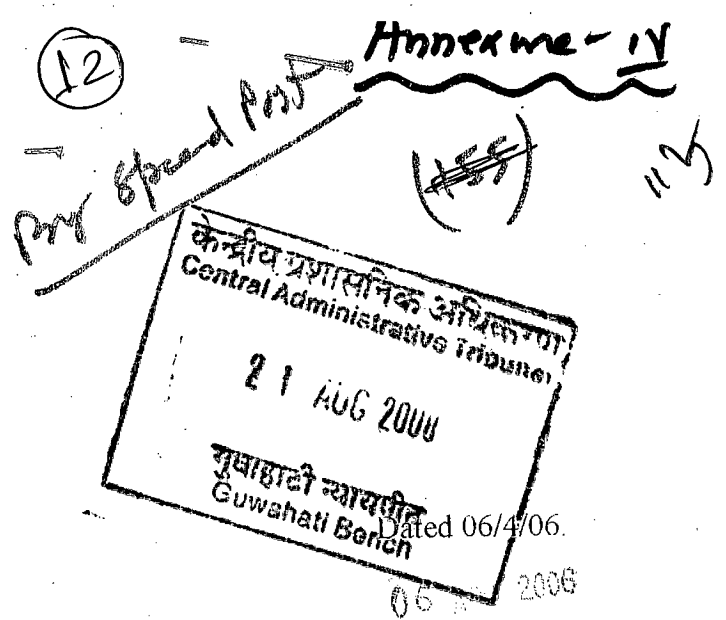 12
Annexure - IV
By Speed Post
(155)
केन्द्रीय प्रशासनिक अधिकरण
Central Administrative Tribunal
21 AUG 2008
गुवाहाटी न्यायपीठ
Guwahati Bench
Dated 06/4/06.
06 2006